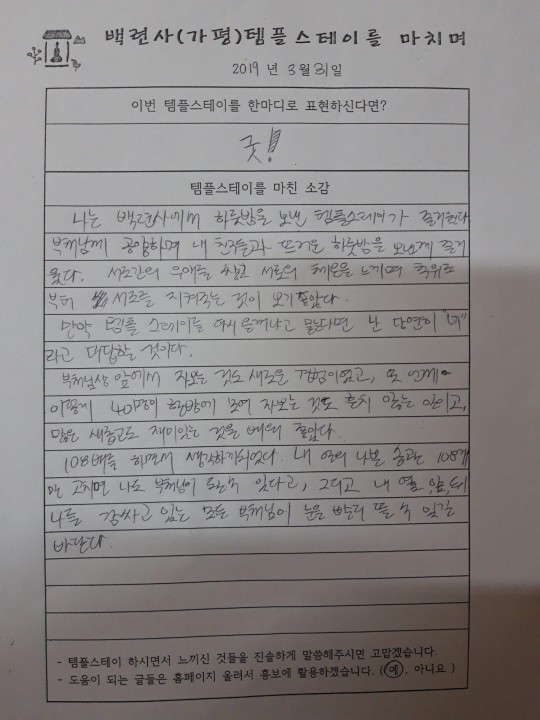 백련사(가평)템플스테이를 마치며
2019 년 3 월 31 일
이번 템플스테이를 한마디로 표현하신다면?
굿!
템플스테이를 마친 소감
나는 백련사에서 하룻밤을 보낸 템플스테이가 즐거웠다
부처님께 공양하며 내 친구들과 뜨거운 하룻밤을 보낸게 즐거
웠다. 서로간의 우애를 서로의 체온을 느끼며 추위로
부터 서로를 지켜주는 것이 보기 좋았다.
만약 템플 스테이를 다시 올꺼냐고 묻는다면 난 단연히 "네"
라고 대답할 것이다.
부처님상 앞에서 자보는 것도 새로운 경험이였고, 또 언제
이렇게 40명이 한방에 모여 자보는 것도 흔치 않는 일이고,
많은 새롭고도 재미있는 것을 배워 좋았다.
108배를 하면서 생각하게되었다. 내 안의 나쁜 습관 108개
만 고치면 나도 부처님이 될수 있다고, 그리고 내 옆, 앞, 뒤
나를 감싸고 있는 모든 부처님이 눈을 빨리 뜰 수 있길
바란다.
- 템플스테이 하시면서 느끼신 것들을 진솔하게 말씀해주시면 고맙겠습니다.
- 도움이 되는 글들은 홈페이지 올려서 홍보에 활용하겠습니다. (예, 아니요 )